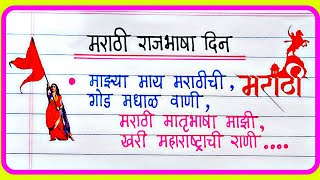 मराठी राजभाषा दिन
• माझ्या माय मराठीची,
गोड मधाळ वाणी,
मराठी मातृभाषा माझी,
खरी महाराष्ट्राची राणी....
मराठी